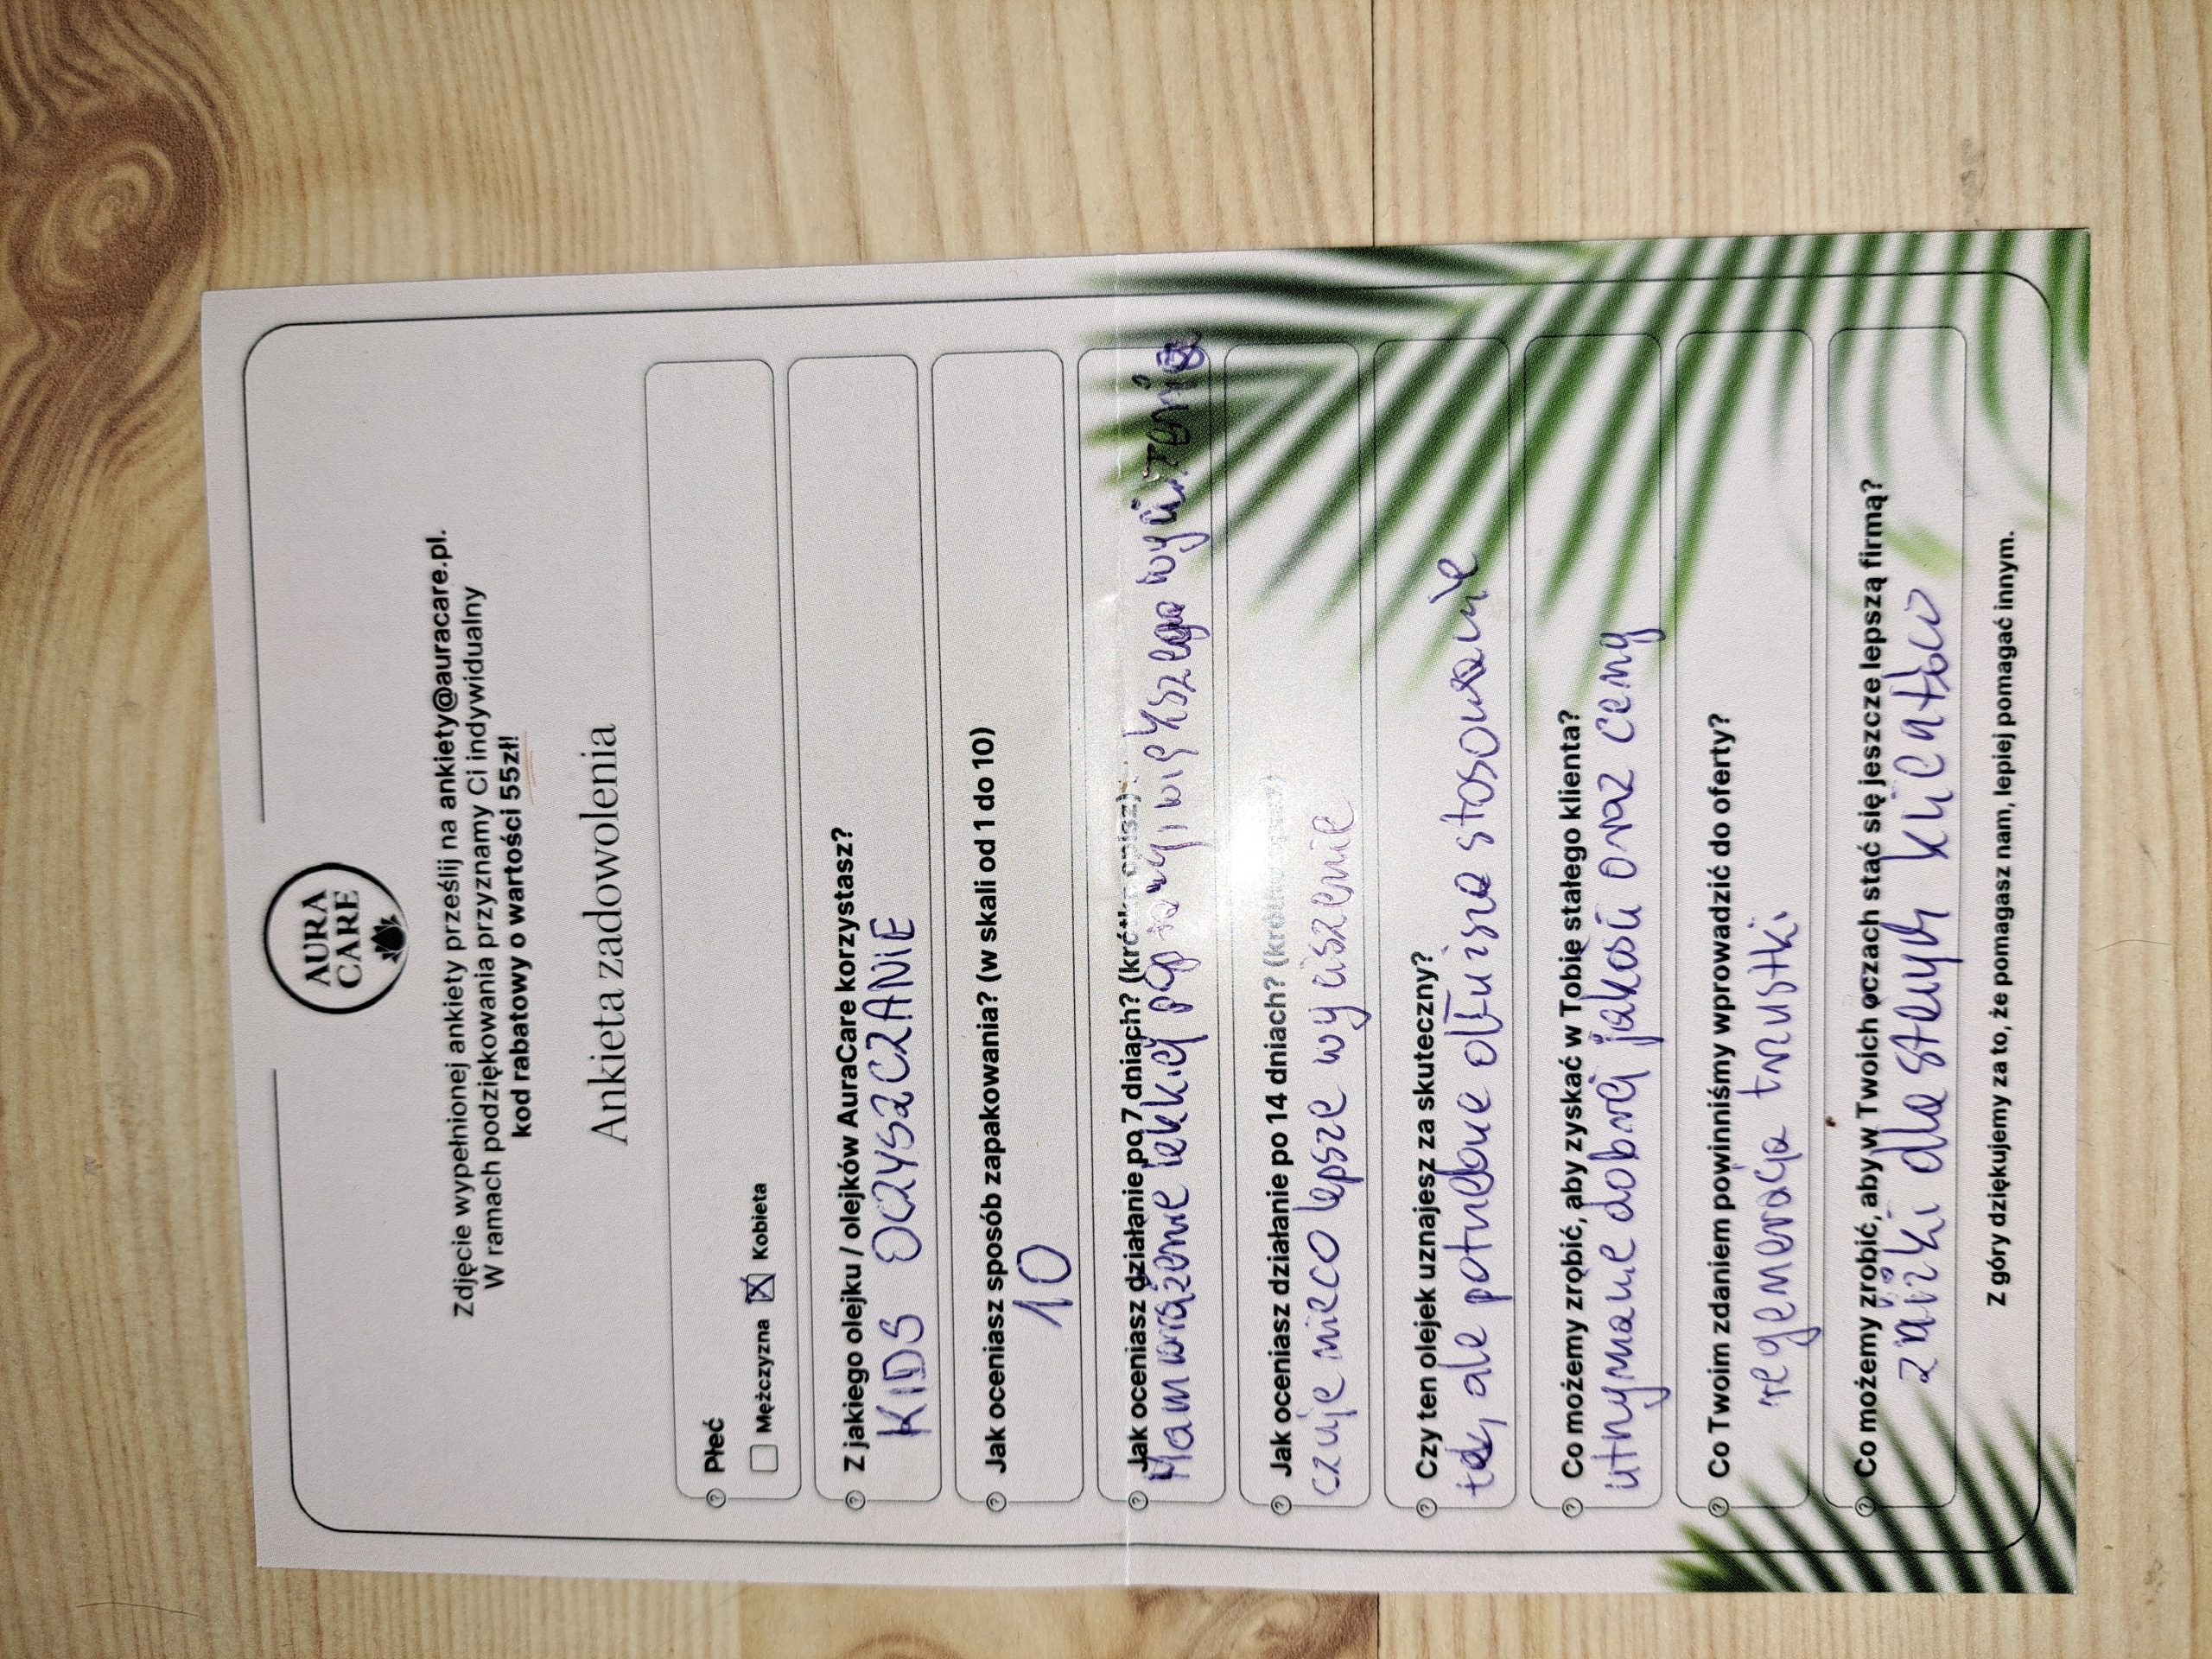 AURA
CARE
Zdjęcie wypełnionej ankiety prześlij na ankiety@auracare.pl.
W ramach podziękowania przyznamy Ci indywidualny
kod rabatowy o wartości 55zł!
Ankieta zadowolenia
Płeć
Mężczyzna Kobieta
Z jakiego olejku / olejków AuraCare korzystasz?
KIDS OCZYSZCZANIE
Jak oceniasz sposób zapakowania? (w skali od 1 do 10)
10
Jak oceniasz działanie po 7 dniach? (krótko opisz)
Mam wrażenie lekkiej poprawy, większego wyciszenia
Jak oceniasz działanie po 14 dniach? (krótko opisz)
czuję nieco lepsze wyciszenie
Czy ten olejek uznajesz za skuteczny?
tak, ale potrzebne dłuższe stosowanie
Co możemy zrobić, aby zyskać w Tobie stałego klienta?
utrzymanie dobrej jakości oraz ceny
Co Twoim zdaniem powinniśmy wprowadzić do oferty?
regeneracja trzustki
Co możemy zrobić, aby w Twoich oczach stać się jeszcze lepszą firmą?
zniżki dla stałych klientów
Z góry dziękujemy za to, że pomagasz nam, lepiej pomagać innym.